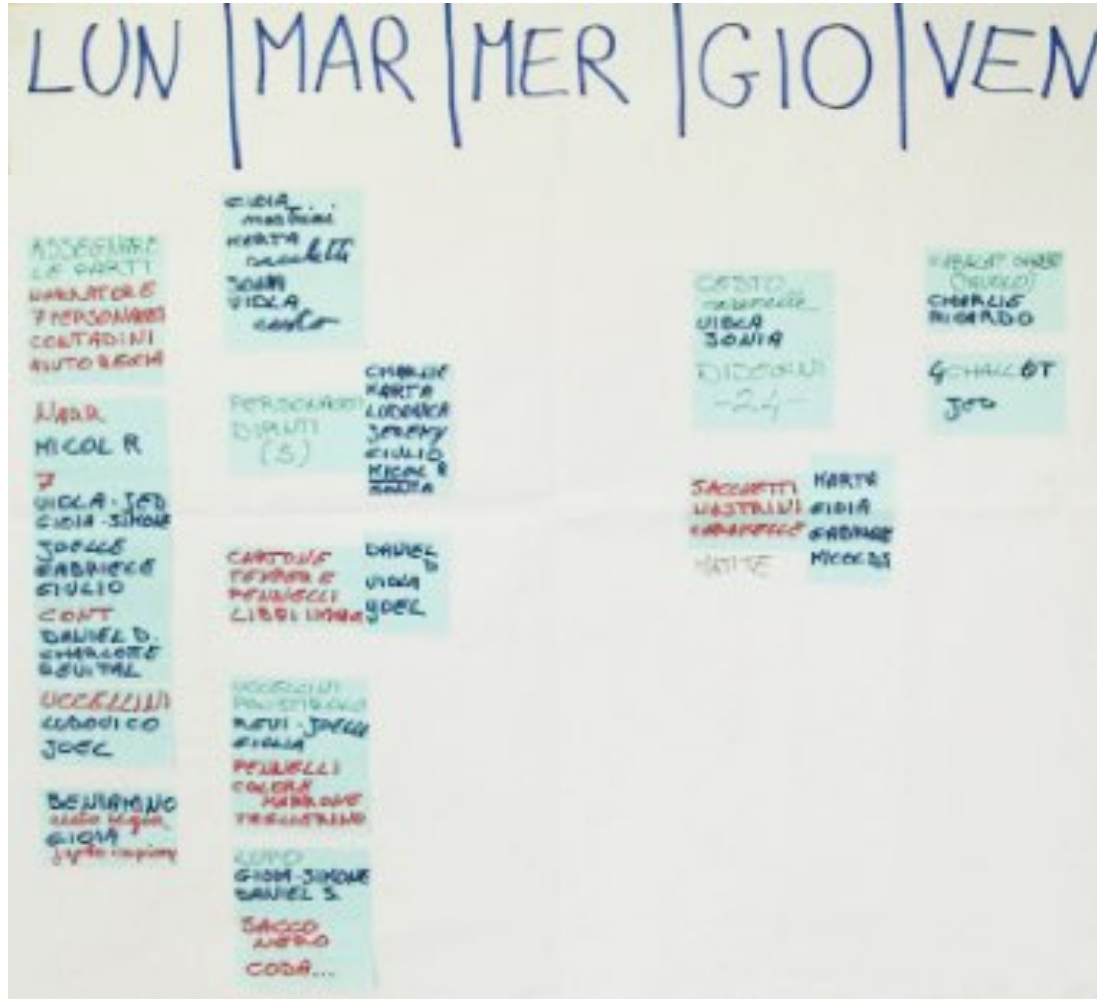 LUN MAR MER GIO VEN
ASSEGNARE
LE PARTI
NARRATORE
7 PERSONAGGI
CONTADINI
AIUTO REGIA
NARR
MICOL R
7
VIOLA - JED
GIOIA - SIMONE
JOELLE
GABRIELE
GIULIO
CONT
DANIEL D.
CHARLOTTE
REVITAL
UCCELLINI
LUDOVICO
JOEL
BENIAMINO
aiuto regia
GIOIA
GIOIA
nastrini
MARTA
sacchetti
SONIA
VIOLA
cesto
PERSONAGGI
DIPINTI
(S)
CHARLIE
MARTA
LUDOVICA
JEREMY
GIULIO
MICOL R
CARTONE
TEMPERE
PENNELLI
LIBRI
DANIEL
D
VIOLA
JOEL
UCCELLINI
POLISTIROLO
REVI - JOELLE
GIULIA
PENNELLI
COLORE
MARRONE
TAGLIERINO
LUPO
GIOIA - SIMONE
DANIEL S.
SACCO
NERO
CODA...
CESTO
VIOLA
SONIA
DISEGNI
-24-
SACCHETTI
NASTRINI
CARAMELLE
MATITE
MARTA
GIOIA
GABRIELE
MICOL
(TAVOLO)
CHARLIE
RICARDO
JED